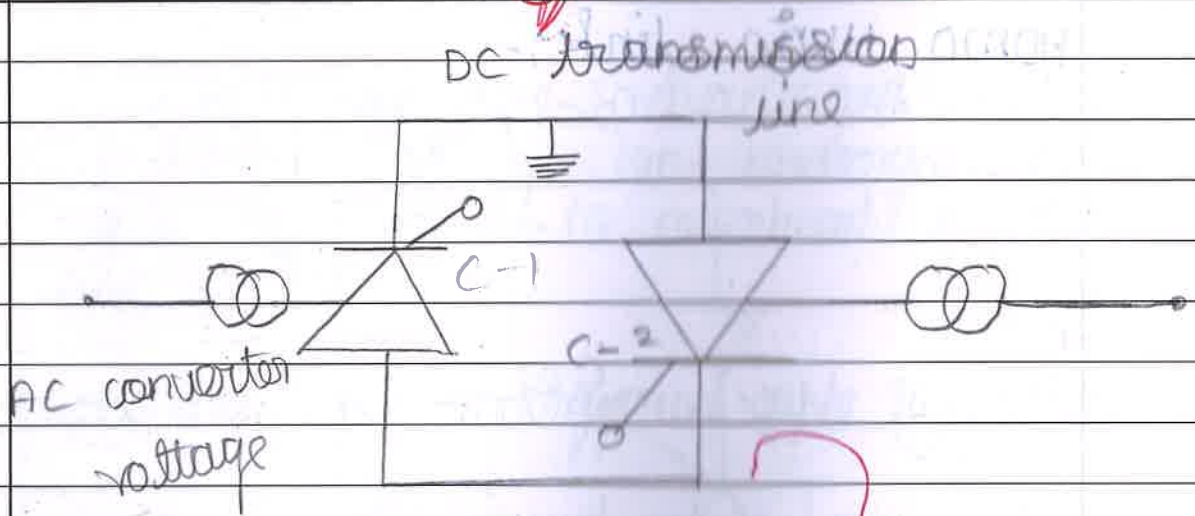 DC transmission
line
C-1
C-2
AC converter
voltage